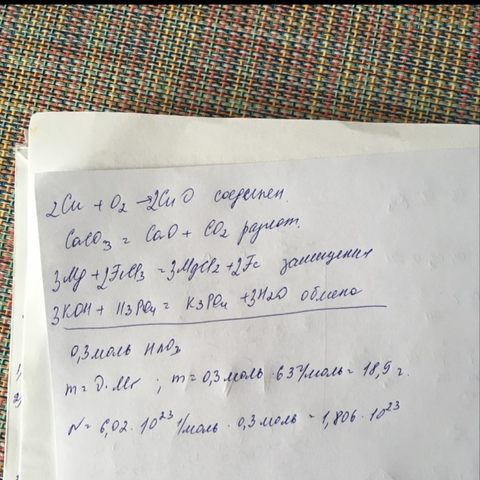 2Cu + O2 → 2CuO соединен.
CaCO3 = CaO + CO2 разлож.
3Mg + 2FeCl3 = 3MgCl2 + 2Fe замещения
3KOH + H3PO4 = K3PO4 + 3H2O обмена
0,3 моль HNO3
m = υ·Mr ; m = 0,3 моль · 63 г/моль = 18,9 г.
N = 6,02 · 10²³ 1/моль · 0,3 моль = 1,806 · 10²³